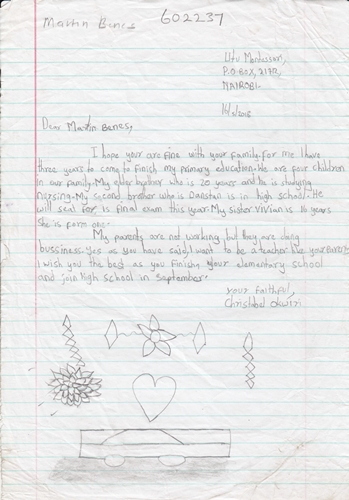 Martin Benes 602237
Utu Montessori,
P.O BOX, 2177,
NAIROBI.
Dear Martin Benes,
I hope your are fine with your family. For me I have
three years to come to finish my primary education. We are four children
in our family. My elder brother who is 20 years and he is studying
nursing. My second brother who is Danstan is in high school. He
will seat for is final exam this year. My sister Vivian is 16 years
she is form one.
My parents are not working but they are doing
bussiness. Yes as you have said, I want to be a teacher like your parents
I wish you the best as you finishy your elementary school
and join high school in September.
Your Faithful,
Christabel Okwiri